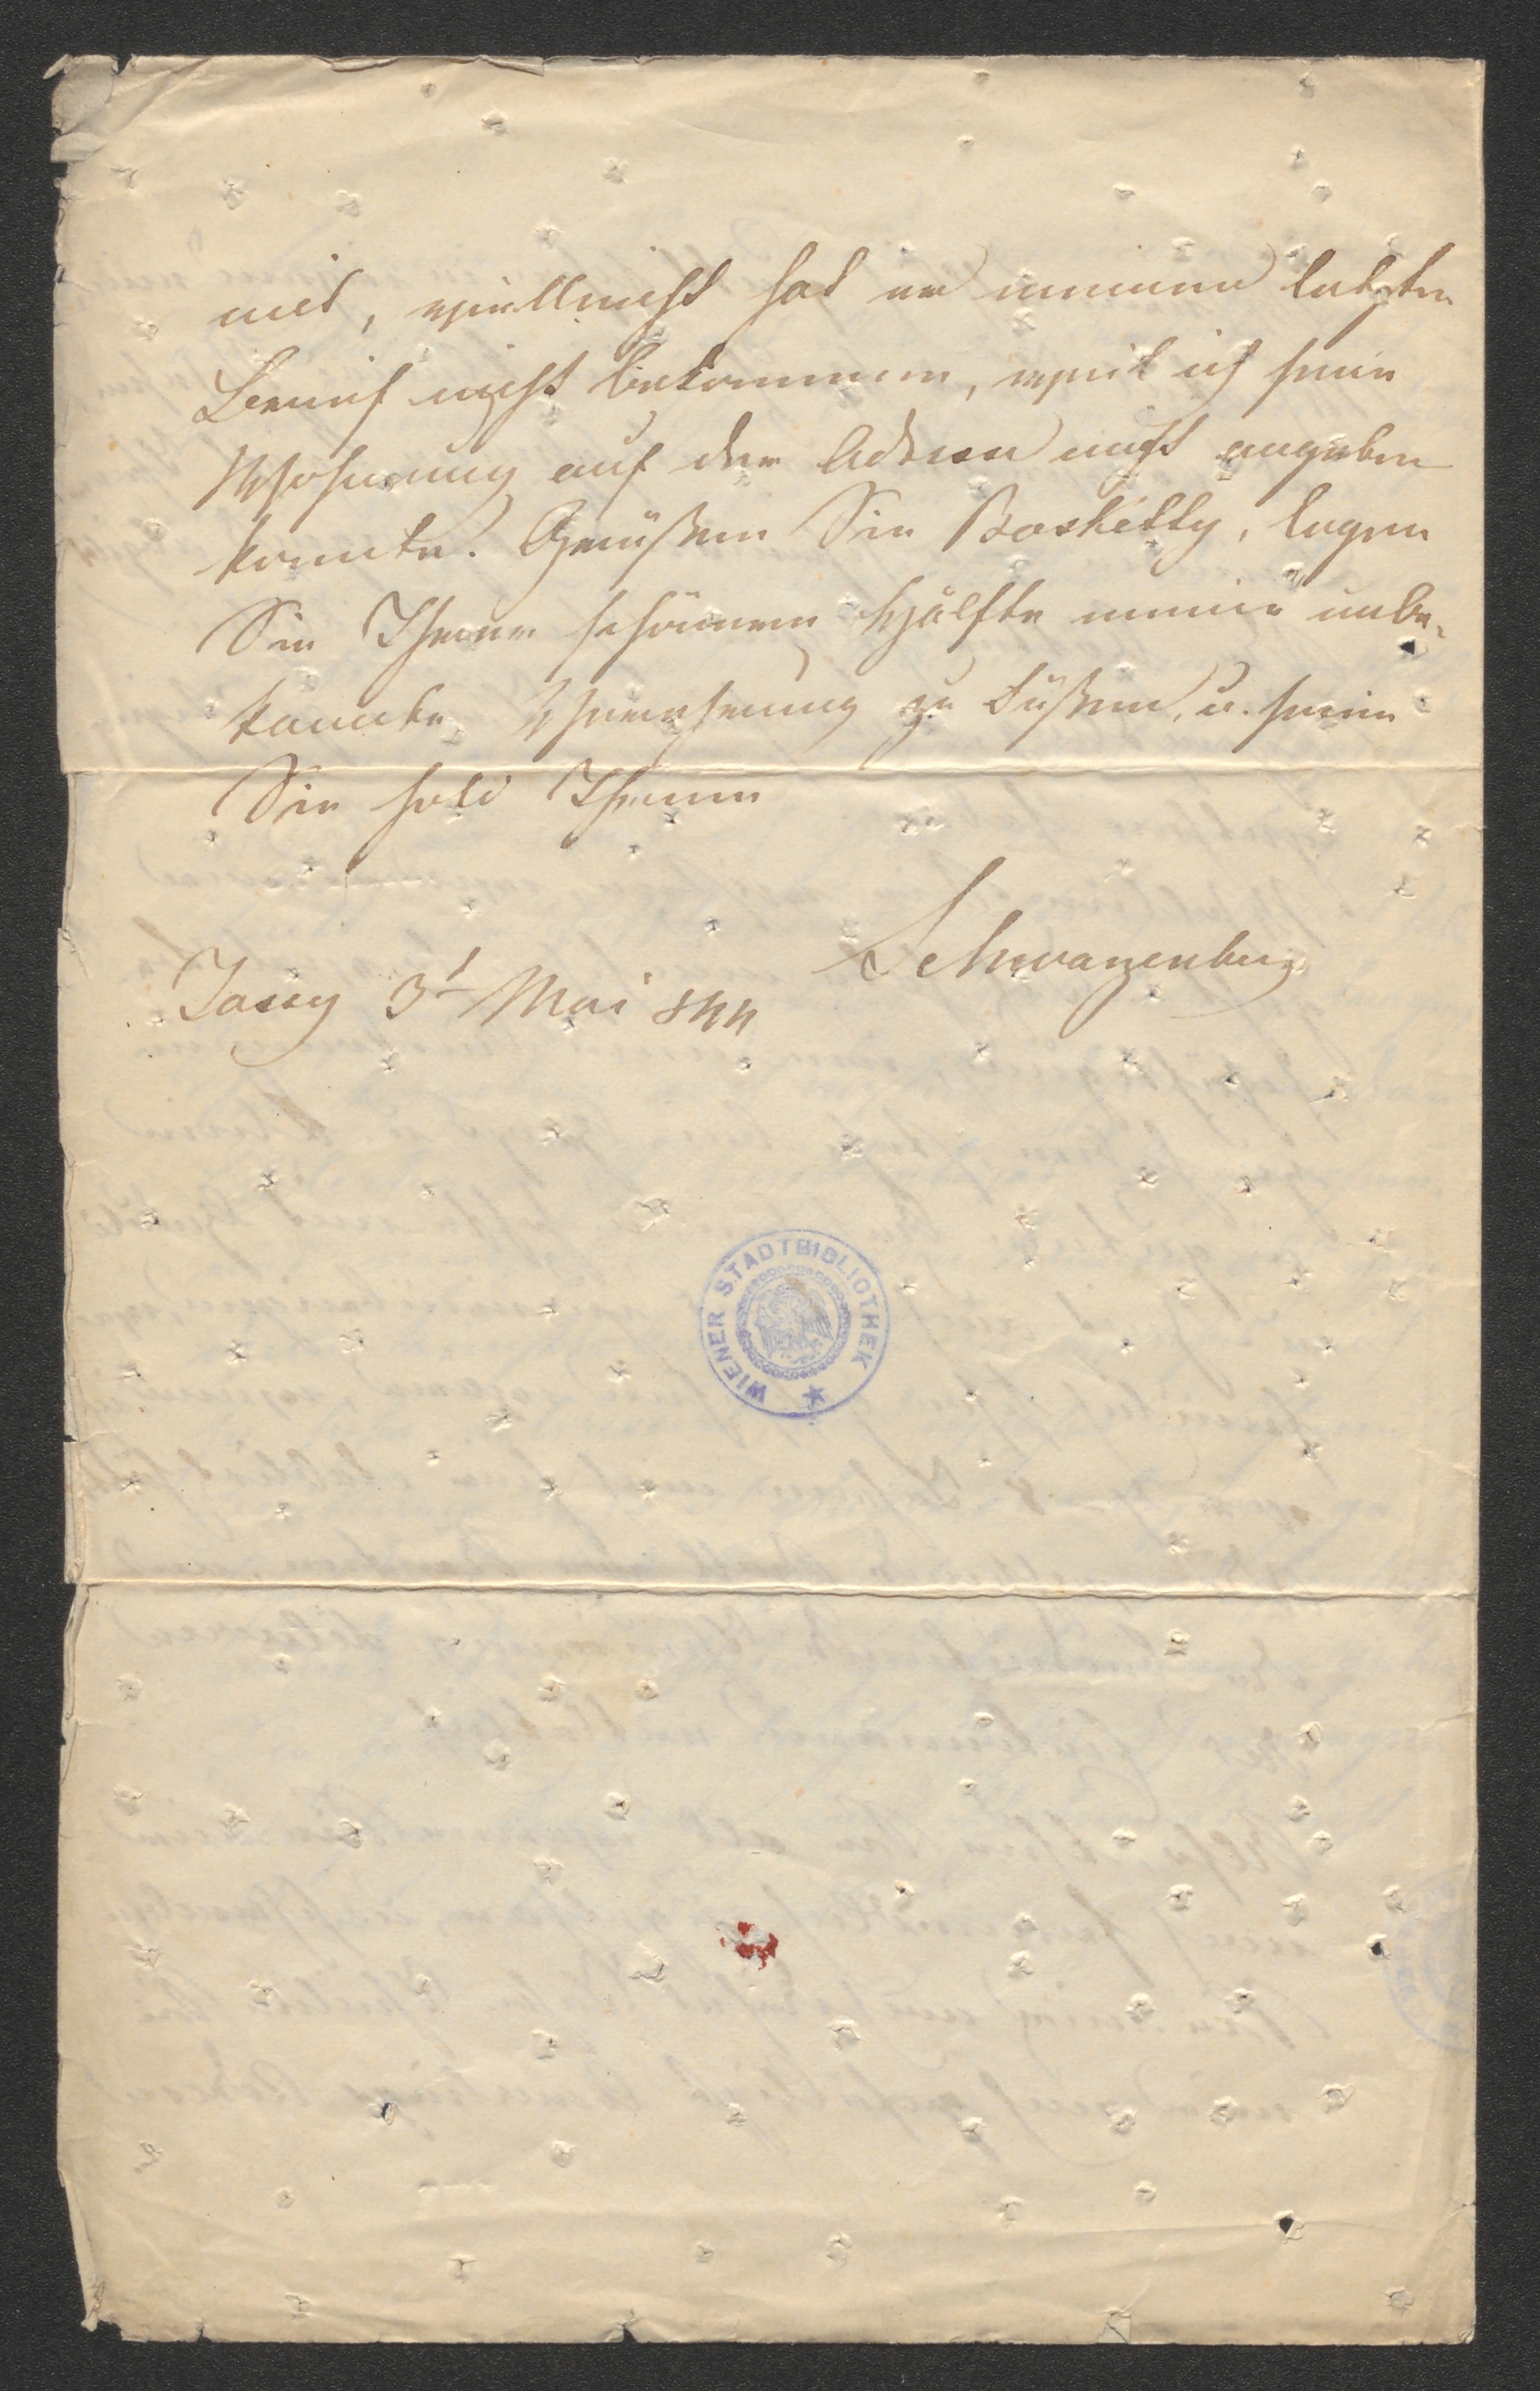 mit, vielleicht hat er meinen letzten
Brief nicht bekommen, weil ich seine
Wohnung auf der Adresse nicht angeben
konnte. Grüßen Sie, legen
Sie Ihrer schönern Hälfte meine unbe-
kannte Verehrung zu Füßen, u. seien
Sie Ihrem
Schwarzenberg
Jassy 3t Mai 844
WIENER STADTBIBLIOTHEK